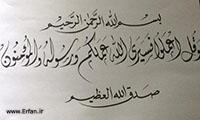 بسم الله الرحمن الرحيم
وقل اعملوا فسيرى الله عملكم ورسوله والمؤمنون
صدق الله العظيم
www.Erfan.ir